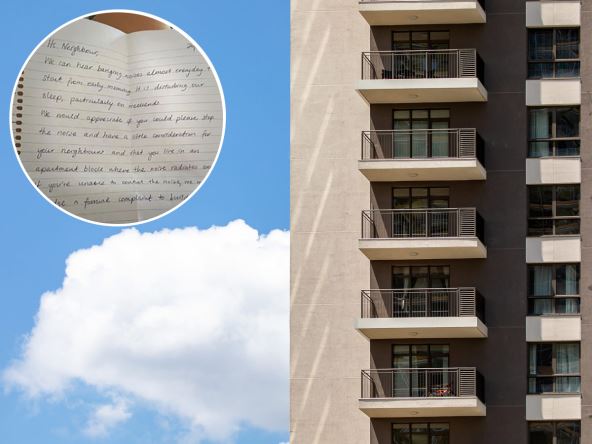 Hi Neighbour,
We can hear banging noises almost everyday
start from early morning it is disturbing our
sleep, particularly on weekends.
We would appreciate if you could please stop
the noise and have a little consideration for
your neighbours and that you live in an
apartment block where the noise radiates
if you're unable to control the noise,
a formal complaint to